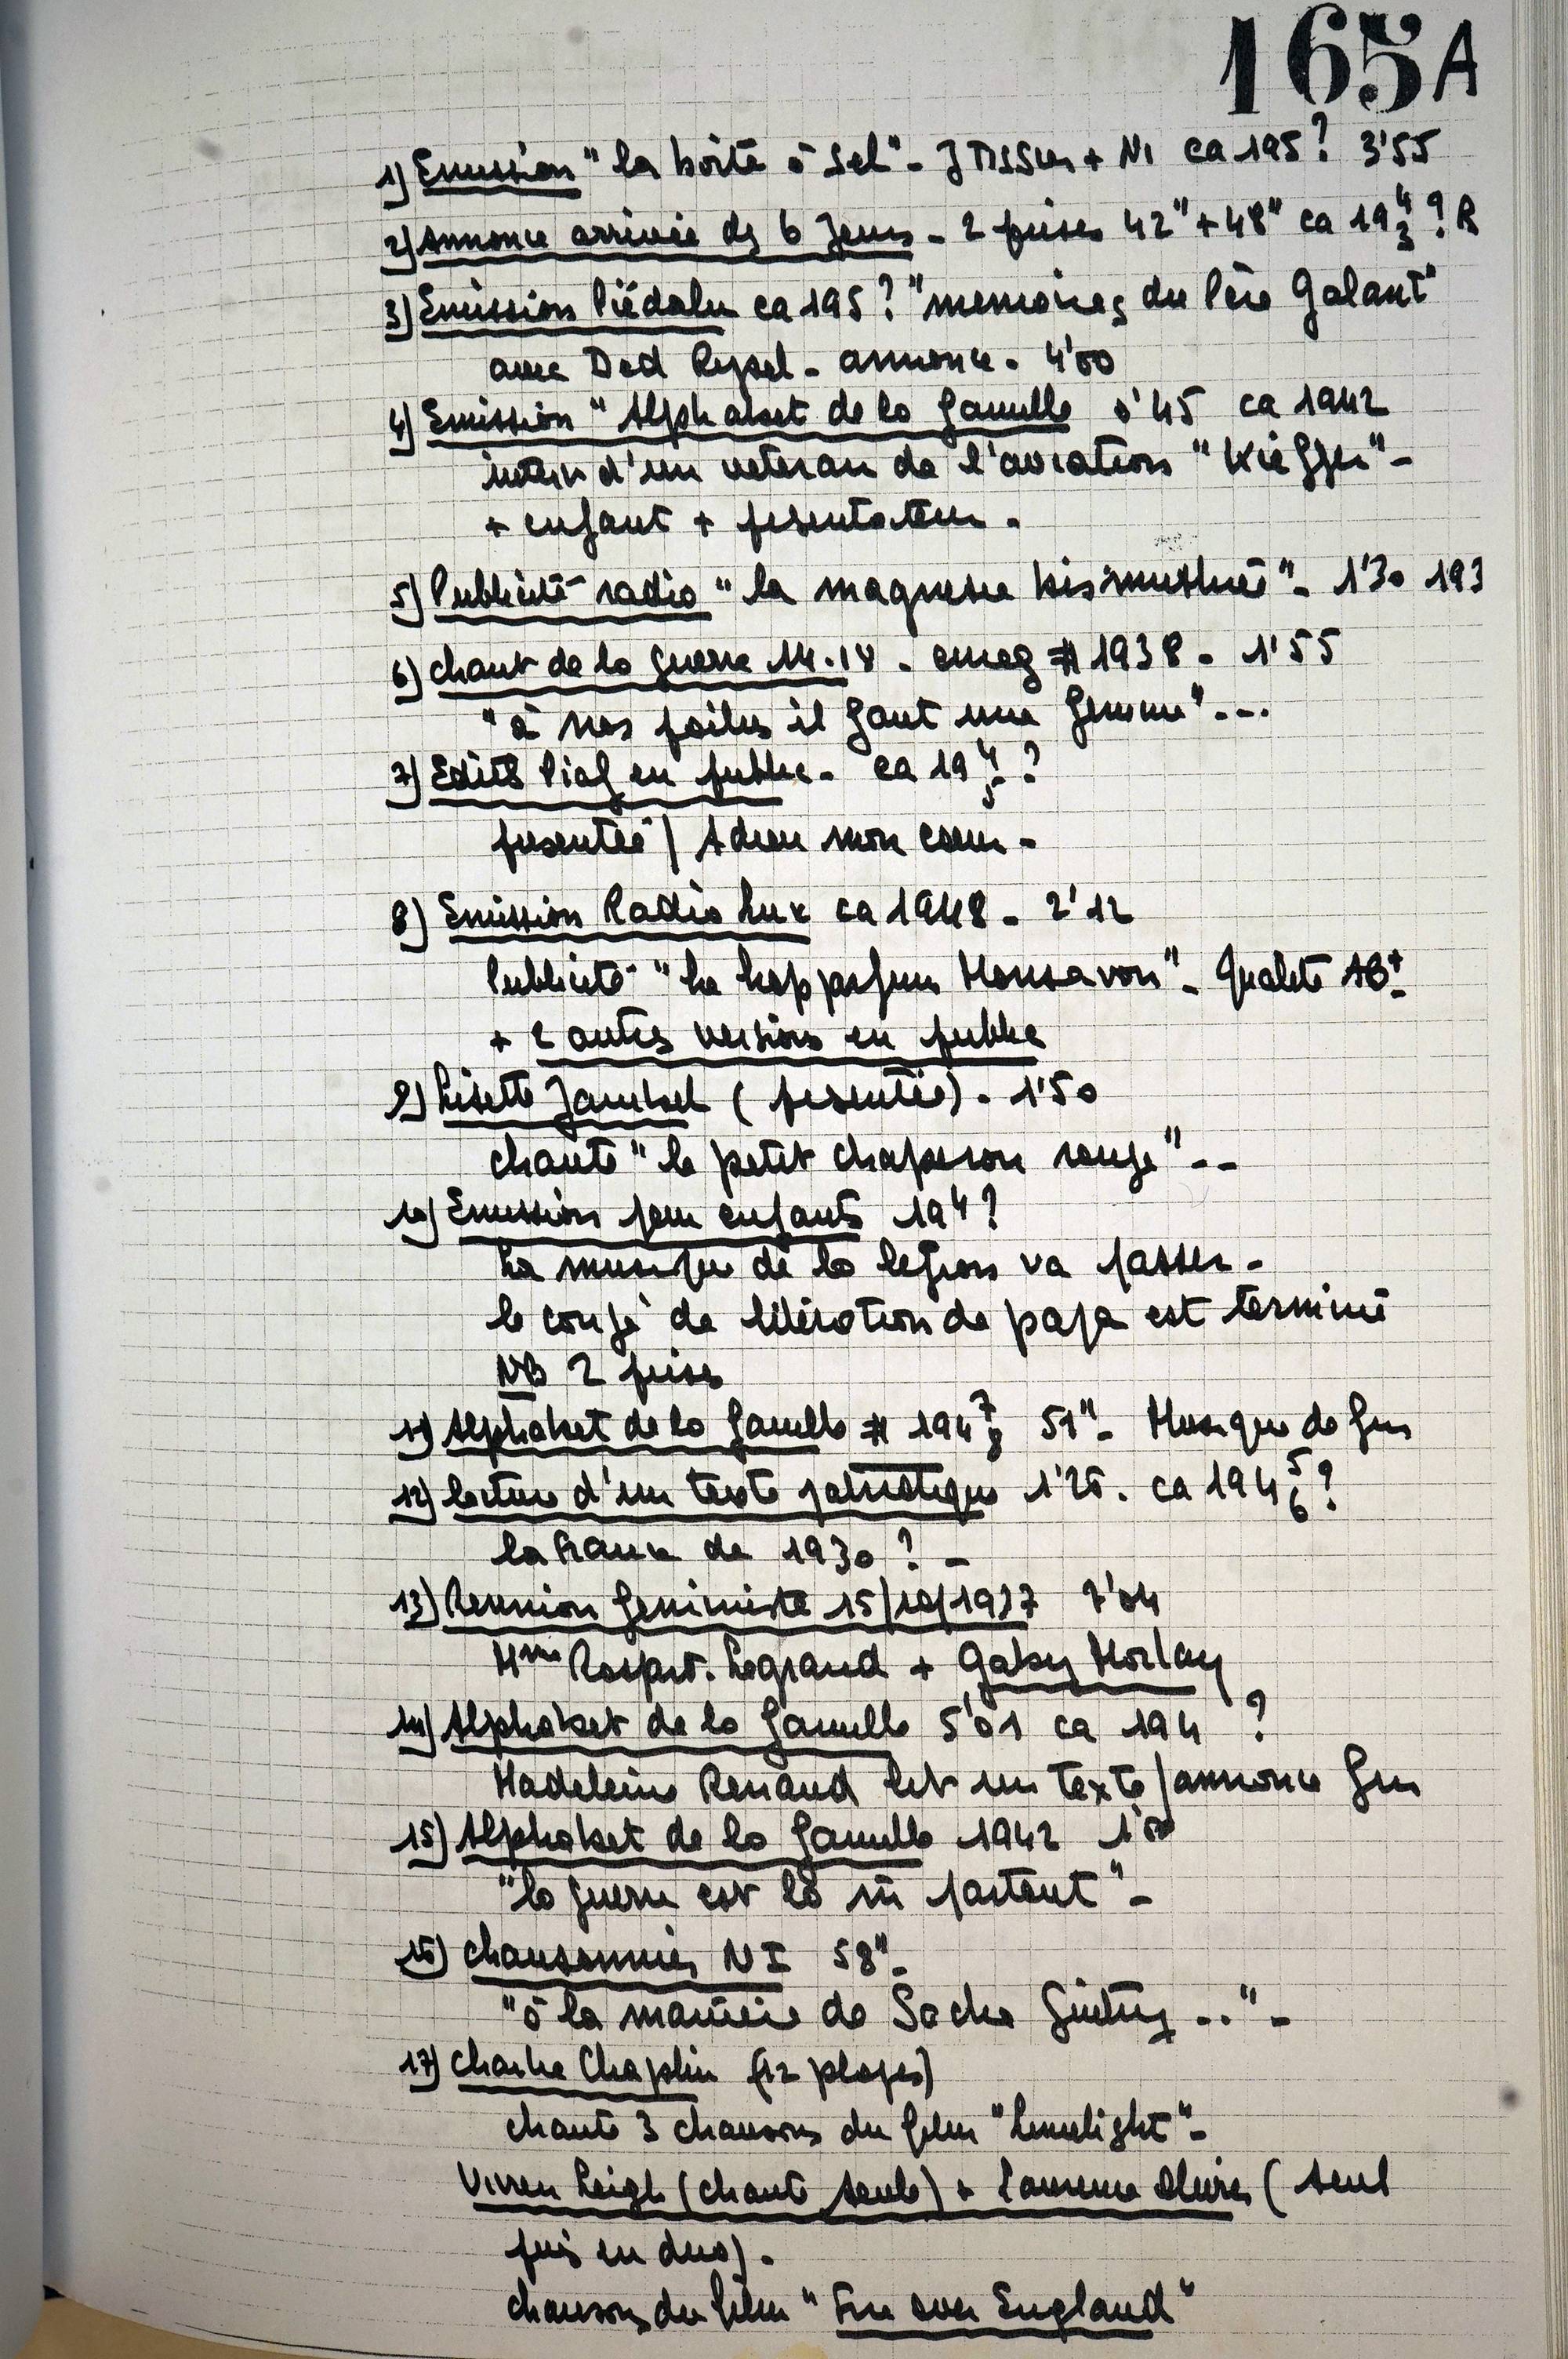 165A
1) Emission "la boîte à sel" - J TISSIER + NI ca 195? 3'55
2) Annonce arrivée des 6 Jeux - 2 prises 42" + 48" ca 19 4/3 ? R
3) Emission Piédalu ca 195? "memoires du Père Galant"
avec Ded Rysel - annonce - 4'00
4) Emission "Alphabet de la famille 0'45 ca 1942
interv d'un veteran de l'aviation "Kieffer" -
+ enfant + presentateur.
5) Publicité radio "la magnesie bismuthée" - 1'30 193
6) chant de la guerre 14.18 - enreg # 1938 - 1'55
"à nos poilus il faut une femme" ...
7) Edith Piaf en public - ca 19 4/5 ?
presentée / Adieu mon coeur -
8) Emission Radio Lux ca 1948 - 2'12
Publicité "Le parfum Monsavon" - Qualité AB+
+ 2 autres versions en public
9) Lisette Jambel (presentée). 1'50
chante "le petit chaperon rouge" --
10) Emission pour enfants 194?
La musique de la legion va passer -
le congé de libération de papa est terminé
NB 2 prises
11) Alphabet de la famille # 194 7/8 51" - Musique de fin
12) lecture d'un texte patriotique 1'25. ca 194 5/6 ?
la France de 1930 ? -
13) Reunion feministe 15/10/1937 2'04
Mme Legrand + Gaby Morlay
14) Alphabet de la famille 5'01 ca 194 ?
Madeleine Renaud lit un texte / annonce fin
15) Alphabet de la famille 1942 1'50
"la guerre est là ni partout" -
16) chansonnier NI 58" -
"à la manière de Sacha Guitry .." -
17) Charlie Chaplin (12 plages)
chante 3 chansons du film "Limelight" -
Vivien Leigh (chante seule) + Laurence Olivier (seul
puis en duo).
chansons du film "Fire over England"